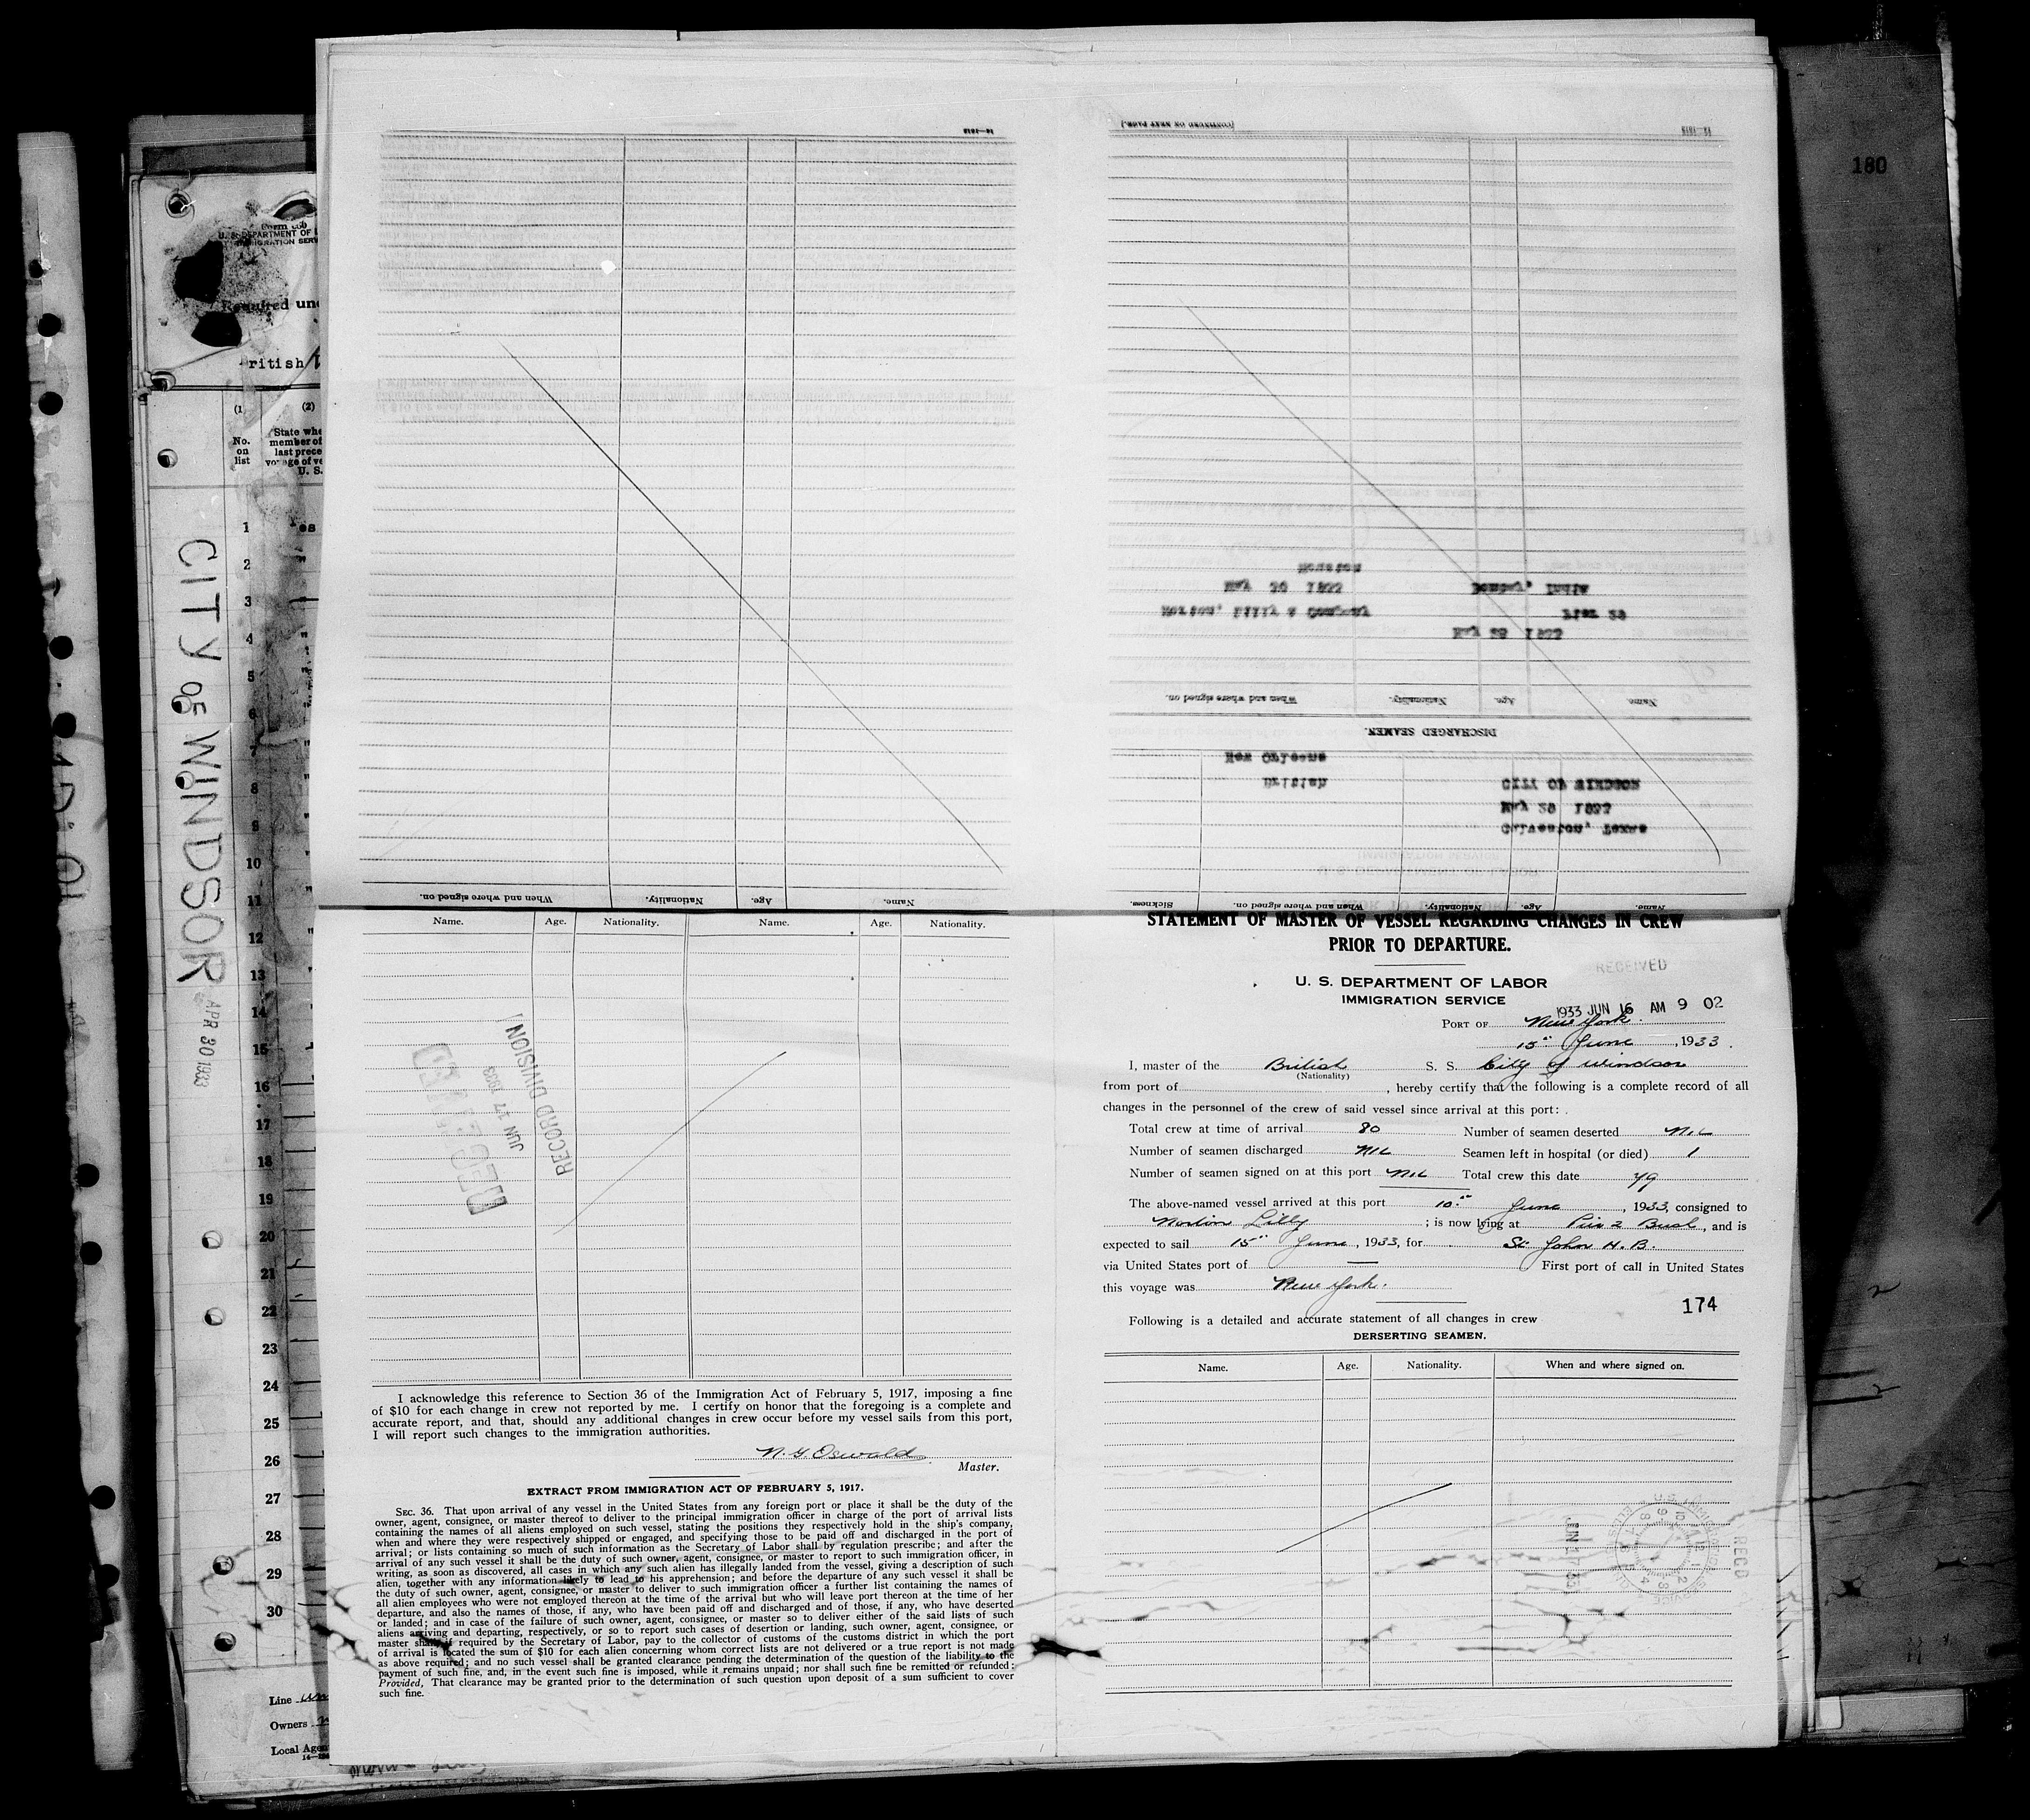 180
Form 680
U. S. DEPARTMENT OF L
IMMIGRATION SERV
Required und
ritish
(1
(2)
No.
on
list
State whe
member of
last prece
voyage of ve
U. S.
1
2
3
4
5
6
7
8
9
10
11
12
13
14
15
16
17
18
19
20
21
22
23
24
25
26
27
28
29
30
CITY OF WINDSOR
APR 30 1933
Line
Owners
Local Age
[CONTINUED ON NEXT PAGE.]
Houston
May 30 1933
Bombay, India
Norton, Lilly & Company
Pier 29
May 29 1933
When and where signed on.
Nationality.
Age.
Name.
DISCHARGED SEAMEN.
New Orleans
British
CITY OF WINDSOR
May 29 1933
Galveston, Texas
When and where signed on.
Nationality.
Age.
Name.
Sickness
When and where signed on.
Nationality.
Age.
Name.
Name.
Age.
Nationality.
Name.
Age.
Nationality.
JUN 17 1933
RECORD DIVISION
I acknowledge this reference to Section 36 of the Immigration Act of February 5, 1917, imposing a fine
of $10 for each change in crew not reported by me. I certify on honor that the foregoing is a complete and
accurate report, and that, should any additional changes in crew occur before my vessel sails from this port,
I will report such changes to the immigration authorities.
Oswald
Master.
EXTRACT FROM IMMIGRATION ACT OF FEBRUARY 5, 1917.
SEC. 36. That upon arrival of any vessel in the United States from any foreign port or place it shall be the duty of the
owner, agent, consignee, or master thereof to deliver to the principal immigration officer in charge of the port of arrival lists
containing the names of all aliens employed on such vessel, stating the positions they respectively hold in the ship's company,
when and where they were respectively shipped or engaged, and specifying those to be paid off and discharged in the port of
arrival; or lists containing so much of such information as the Secretary of Labor shall by regulation prescribe; and after the
arrival of any such vessel it shall be the duty of such owner, agent, consignee, or master to report to such immigration officer, in
writing, as soon as discovered, all cases in which any such alien has illegally landed from the vessel, giving a description of such
alien, together with any information likely to lead to his apprehension; and before the departure of any such vessel it shall be
the duty of such owner, agent, consignee, or master to deliver to such immigration officer a further list containing the names of
all alien employees who were not employed thereon at the time of the arrival but who will leave port thereon at the time of her
departure, and also the names of those, if any, who have been paid off and discharged and of those, if any, who have deserted
or landed; and in case of the failure of such owner, agent, consignee, or master so to deliver either of the said lists of such
aliens arriving and departing, respectively, or so to report such cases of desertion or landing, such owner, agent, consignee, or
master shall, if required by the Secretary of Labor, pay to the collector of customs of the customs district in which the port
of arrival is located the sum of $10 for each alien concerning whom correct lists are not delivered or a true report is not made
as above required; and no such vessel shall be granted clearance pending the determination of the question of the liability to the
payment of such fine, and, in the event such fine is imposed, while it remains unpaid; nor shall such fine be remitted or refunded:
Provided, That clearance may be granted prior to the determination of such question upon deposit of a sum sufficient to cover
such fine.
STATEMENT OF MASTER OF VESSEL REGARDING CHANGES IN CREW
PRIOR TO DEPARTURE.
RECEIVED
U. S. DEPARTMENT OF LABOR
IMMIGRATION SERVICE
1933 JUN 16 AM 9 02
PORT OF New York.
15th June, 1933.
I, master of the British S. S. City of Windsor
(Nationality)
from port of , hereby certify that the following is a complete record of all
changes in the personnel of the crew of said vessel since arrival at this port:
Total crew at time of arrival 80 Number of seamen deserted NIL
Number of seamen discharged NIL Seamen left in hospital (or died) 1
Number of seamen signed on at this port NIL Total crew this date 79
The above-named vessel arrived at this port 10th June, 1933, consigned to
Norton Lilly ; is now lying at Pier 2 Bush, and is
expected to sail 15th June, 1933, for St John N.B.
via United States port of — First port of call in United States
this voyage was New York.
174
Following is a detailed and accurate statement of all changes in crew
DERSERTING SEAMEN.
Name.
Age.
Nationality.
When and where signed on.
JUN 17 33
REC'D